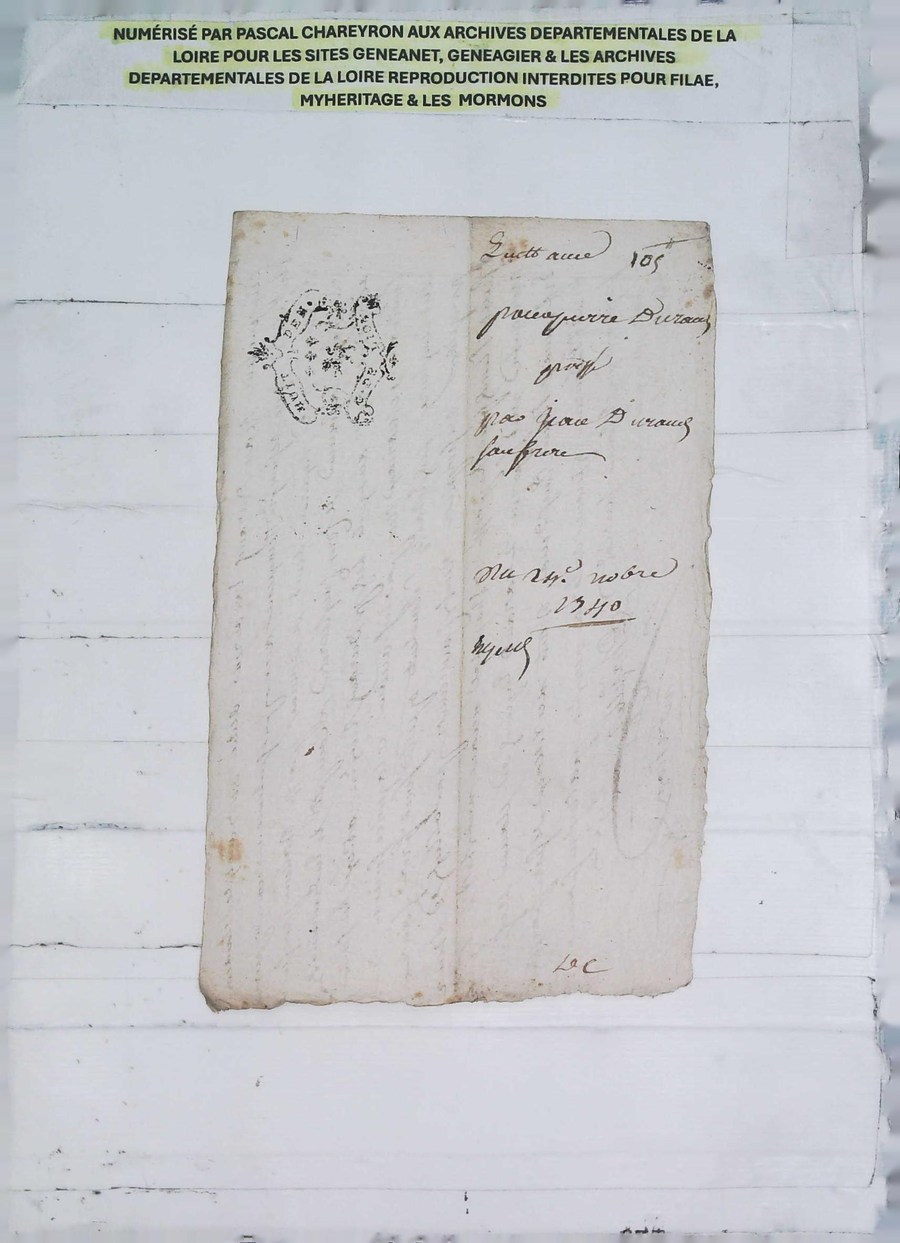 NUMÉRISÉ PAR PASCAL CHAREYRON AUX ARCHIVES DEPARTEMENTALES DE LA
LOIRE POUR LES SITES GENEANET, GENEAGIER & LES ARCHIVES
DEPARTEMENTALES DE LA LOIRE REPRODUCTION INTERDITES POUR FILAE,
MYHERITAGE & LES MORMONS
HUIT DEN.
Quittance 105
pour pierre Durand
par Durand
son frere
Du 24e nobre
1740